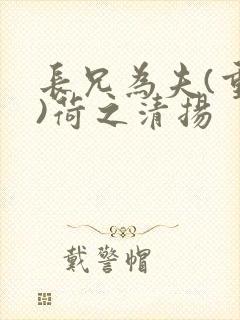 長兄為夫(重
)荷之清揚
戴警帽